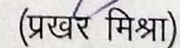 (प्रखर मिश्रा)